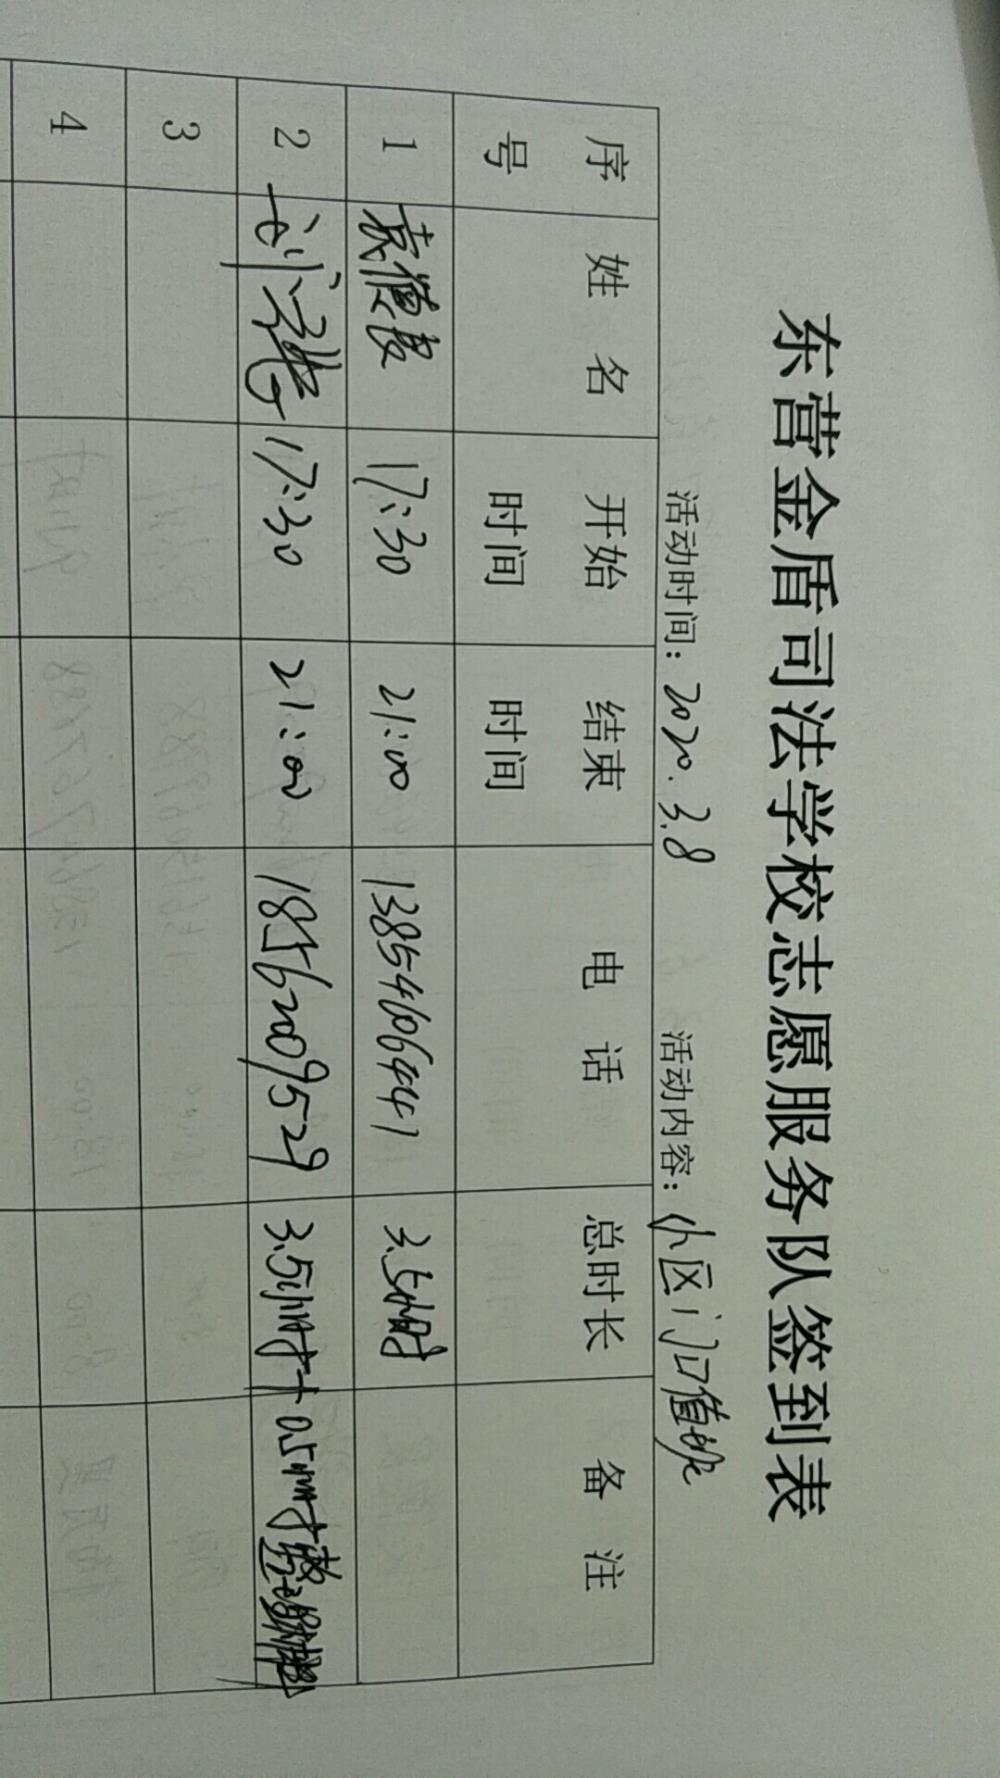 东营金盾司法学校志愿服务队签到表
活动时间：2020.3.8 活动内容：小区门口值班
序号 姓名 开始时间 结束时间 电话 总时长 备注
1 袁俊 17:30 21:00 13854606441 3.5小时
2 17:30 21:00 18562009529 3.5小时+0.5小时整
3
4